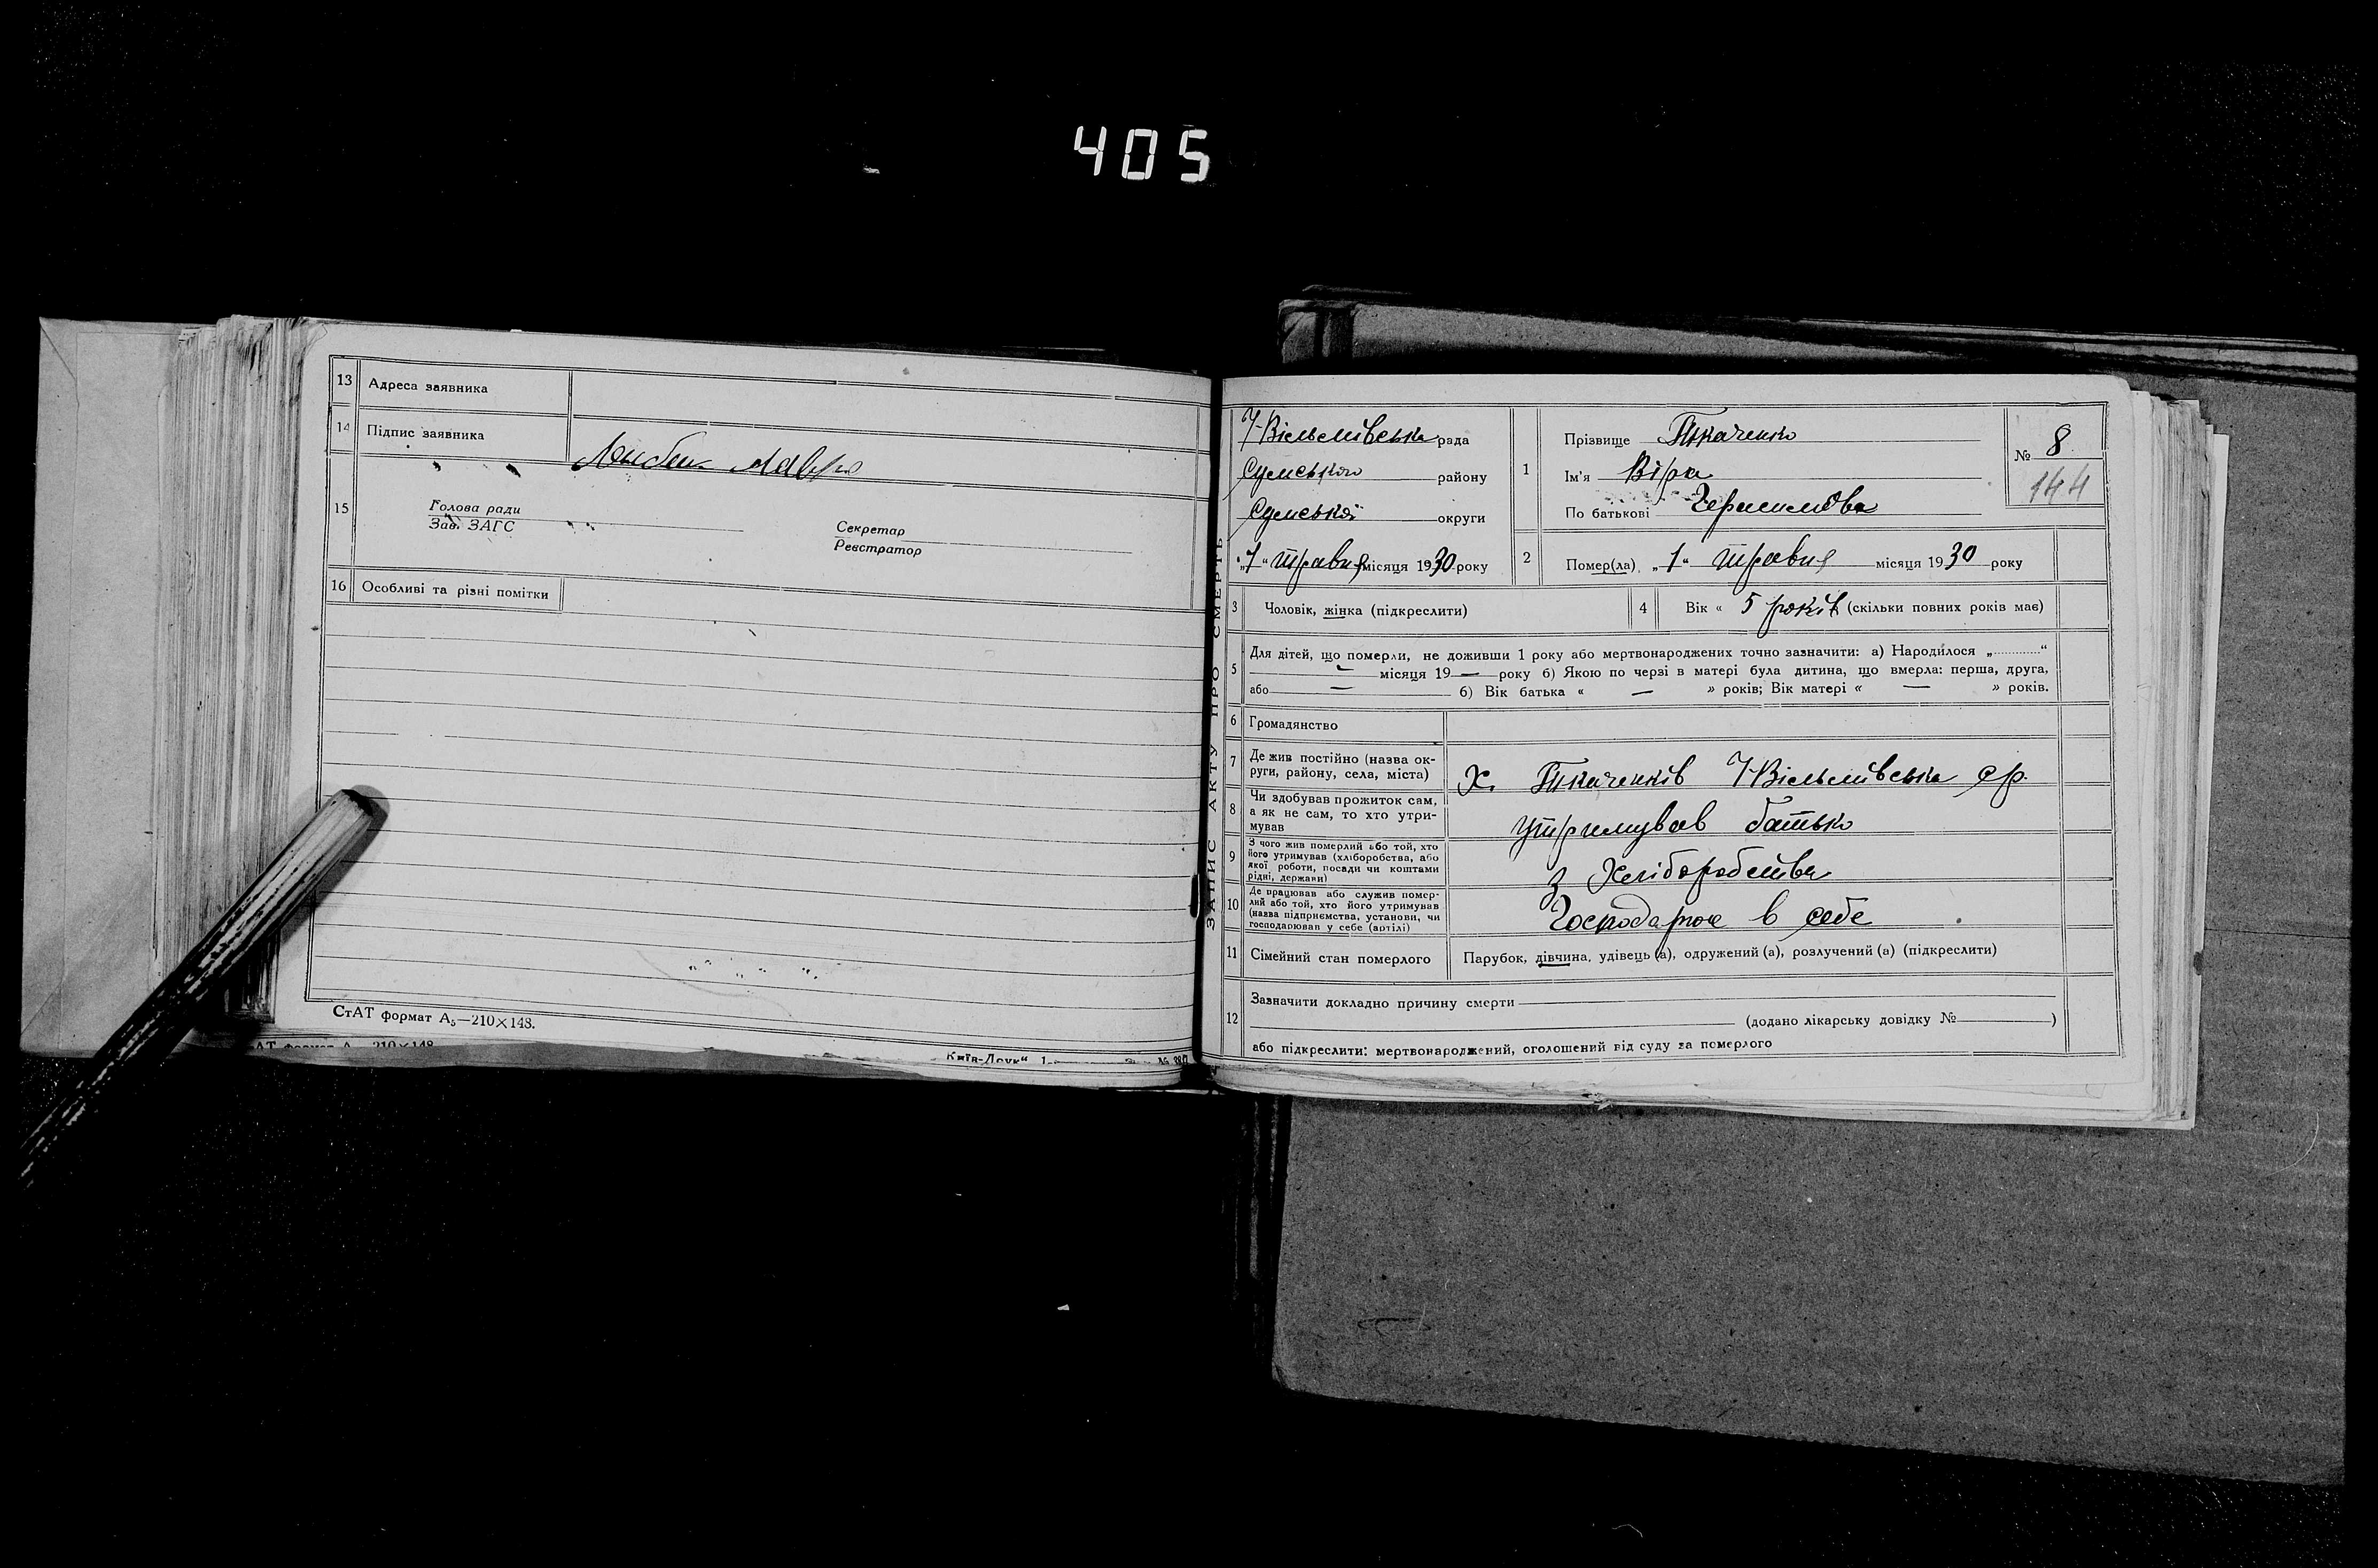 405
13 Адреса заявника
14 Підпис заявника
15 Голова ради
Зав. ЗАГС
Секретар
Реєстратор
16 Особливі та різні помітки
СтАТ формат А₅—210×148.
ЗАПИС АКТУ ПРО СМЕРТЬ
рада
Сумського району
Сумської округи
„1“ травня місяця 1930 року
1 Прізвище Ткаченко
Ім'я Віра
По батькові Герасимовна
№ 8
144
2 Помер(ла) „1“ травня місяця 1930 року
3 Чоловік, жінка (підкреслити)
4 Вік « 5 років (скільки повних років має)
5 Для дітей, що померли, не доживши 1 року або мертвонароджених точно зазначити: а) Народилося „............“
— місяця 19 — року б) Якою по черзі в матері була дитина, що вмерла: перша, друга,
або — б) Вік батька « — » років; Вік матері « — » років.
6 Громадянство
7 Де жив постійно (назва ок-
руги, району, села, міста)
Х. Ткаченків с/р.
8 Чи здобував прожиток сам,
а як не сам, то хто утри-
мував
Утримував батько
9 З чого жив померлий або той, хто
його утримував (хліборобства, або
якої роботи, посади чи коштами
рідні, держави)
З Хліборобства
10 Де працював або служив помер-
лий або той, хто його утримував
(назва підприємства, установи, чи
господарював у себе (артілі)
Господарює в себе
11 Сімейний стан померлого
Парубок, дівчина, удівець (а), одружений (а), розлучений (а) (підкреслити)
12 Зазначити докладно причину смерти
(додано лікарську довідку № )
або підкреслити: мертвонароджений, оголошений від суду за померлого